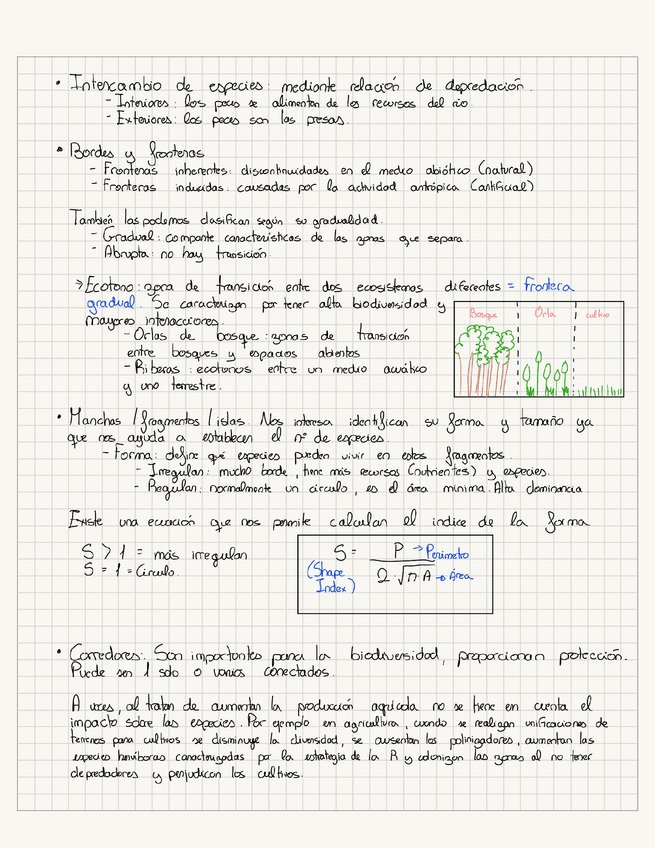 • Intercambio de especies: mediante relación de depredación.
- Interiores: los peces se alimentan de los recursos del río
- Exteriores: los peces son las presas.
• Bordes y fronteras
- Fronteras inherentes: discontinuidades en el medio abiótico (natural)
- Fronteras inducidas: causadas por la actividad antrópica (artificial)
También las podemos clasificar según su gradualidad.
- Gradual: comparte características de las zonas que separa.
- Abrupta: no hay transición
→ Ecotono: zona de transición entre dos ecosistemas diferentes = Frontera
gradual. Se caracterizan por tener alta biodiversidad y
mayores interacciones.
- Orlas de bosque: zonas de transición
entre bosques y espacios abiertos
- Riberas: ecotonos entre un medio acuático
y uno terrestre.
Bosque Orla cultivo
• Manchas / fragmentos / islas. Nos interesa identificar su forma y tamaño ya
que nos ayuda a establecer el nº de especies.
- Forma: define qué especies pueden vivir en estos fragmentos.
- Irregular: mucho borde, tiene más recursos (nutrientes) y especies.
- Regular: normalmente un círculo, es el área mínima. Alta dominancia.
Existe una ecuación que nos permite calcular el índice de la forma
S > 1 = más irregular
S = 1 = Círculo.
S = P → Perímetro
2·√π·A → Área
(Shape
Index)
• Corredores: Son importantes para la biodiversidad, proporcionan protección.
Puede ser 1 solo o varios conectados.
A veces, al tratar de aumentar la producción agrícola no se tiene en cuenta el
impacto sobre las especies. Por ejemplo en agricultura, cuando se realizan unificaciones de
terrenos para cultivos se disminuye la diversidad, se ausentan los polinizadores, aumentan las
especies herviboras caracterizadas por la estrategia de la R y colonizan las zonas al no tener
depredadores y perjudican los cultivos.